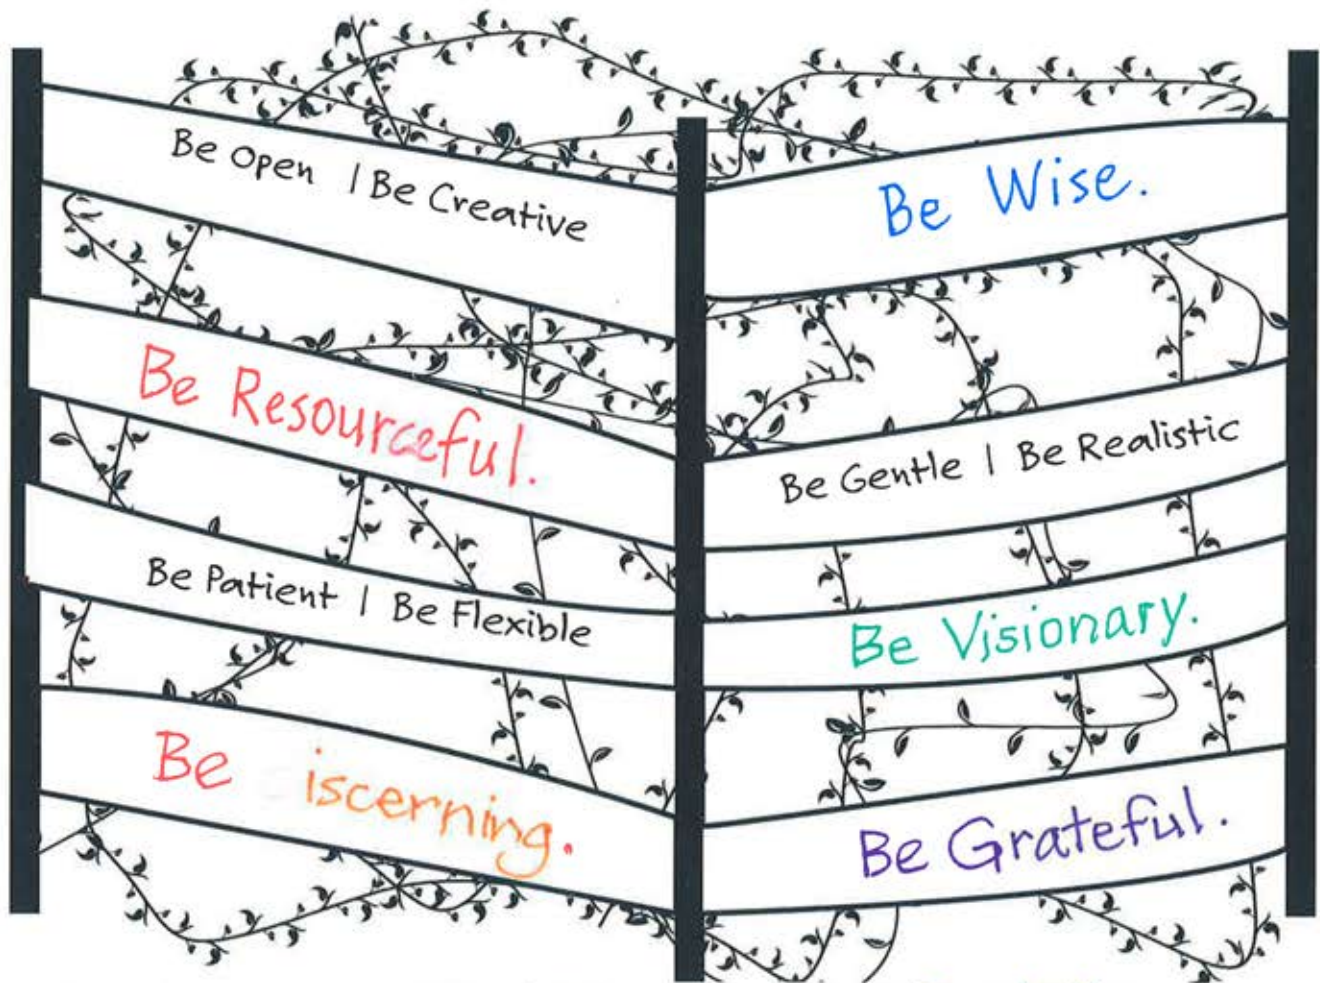 Be Open | Be Creative
Be Resourceful.
Be Patient | Be Flexible
Be iscerning.
Be Wise.
Be Gentle | Be Realistic
Be Visionary.
Be Grateful.